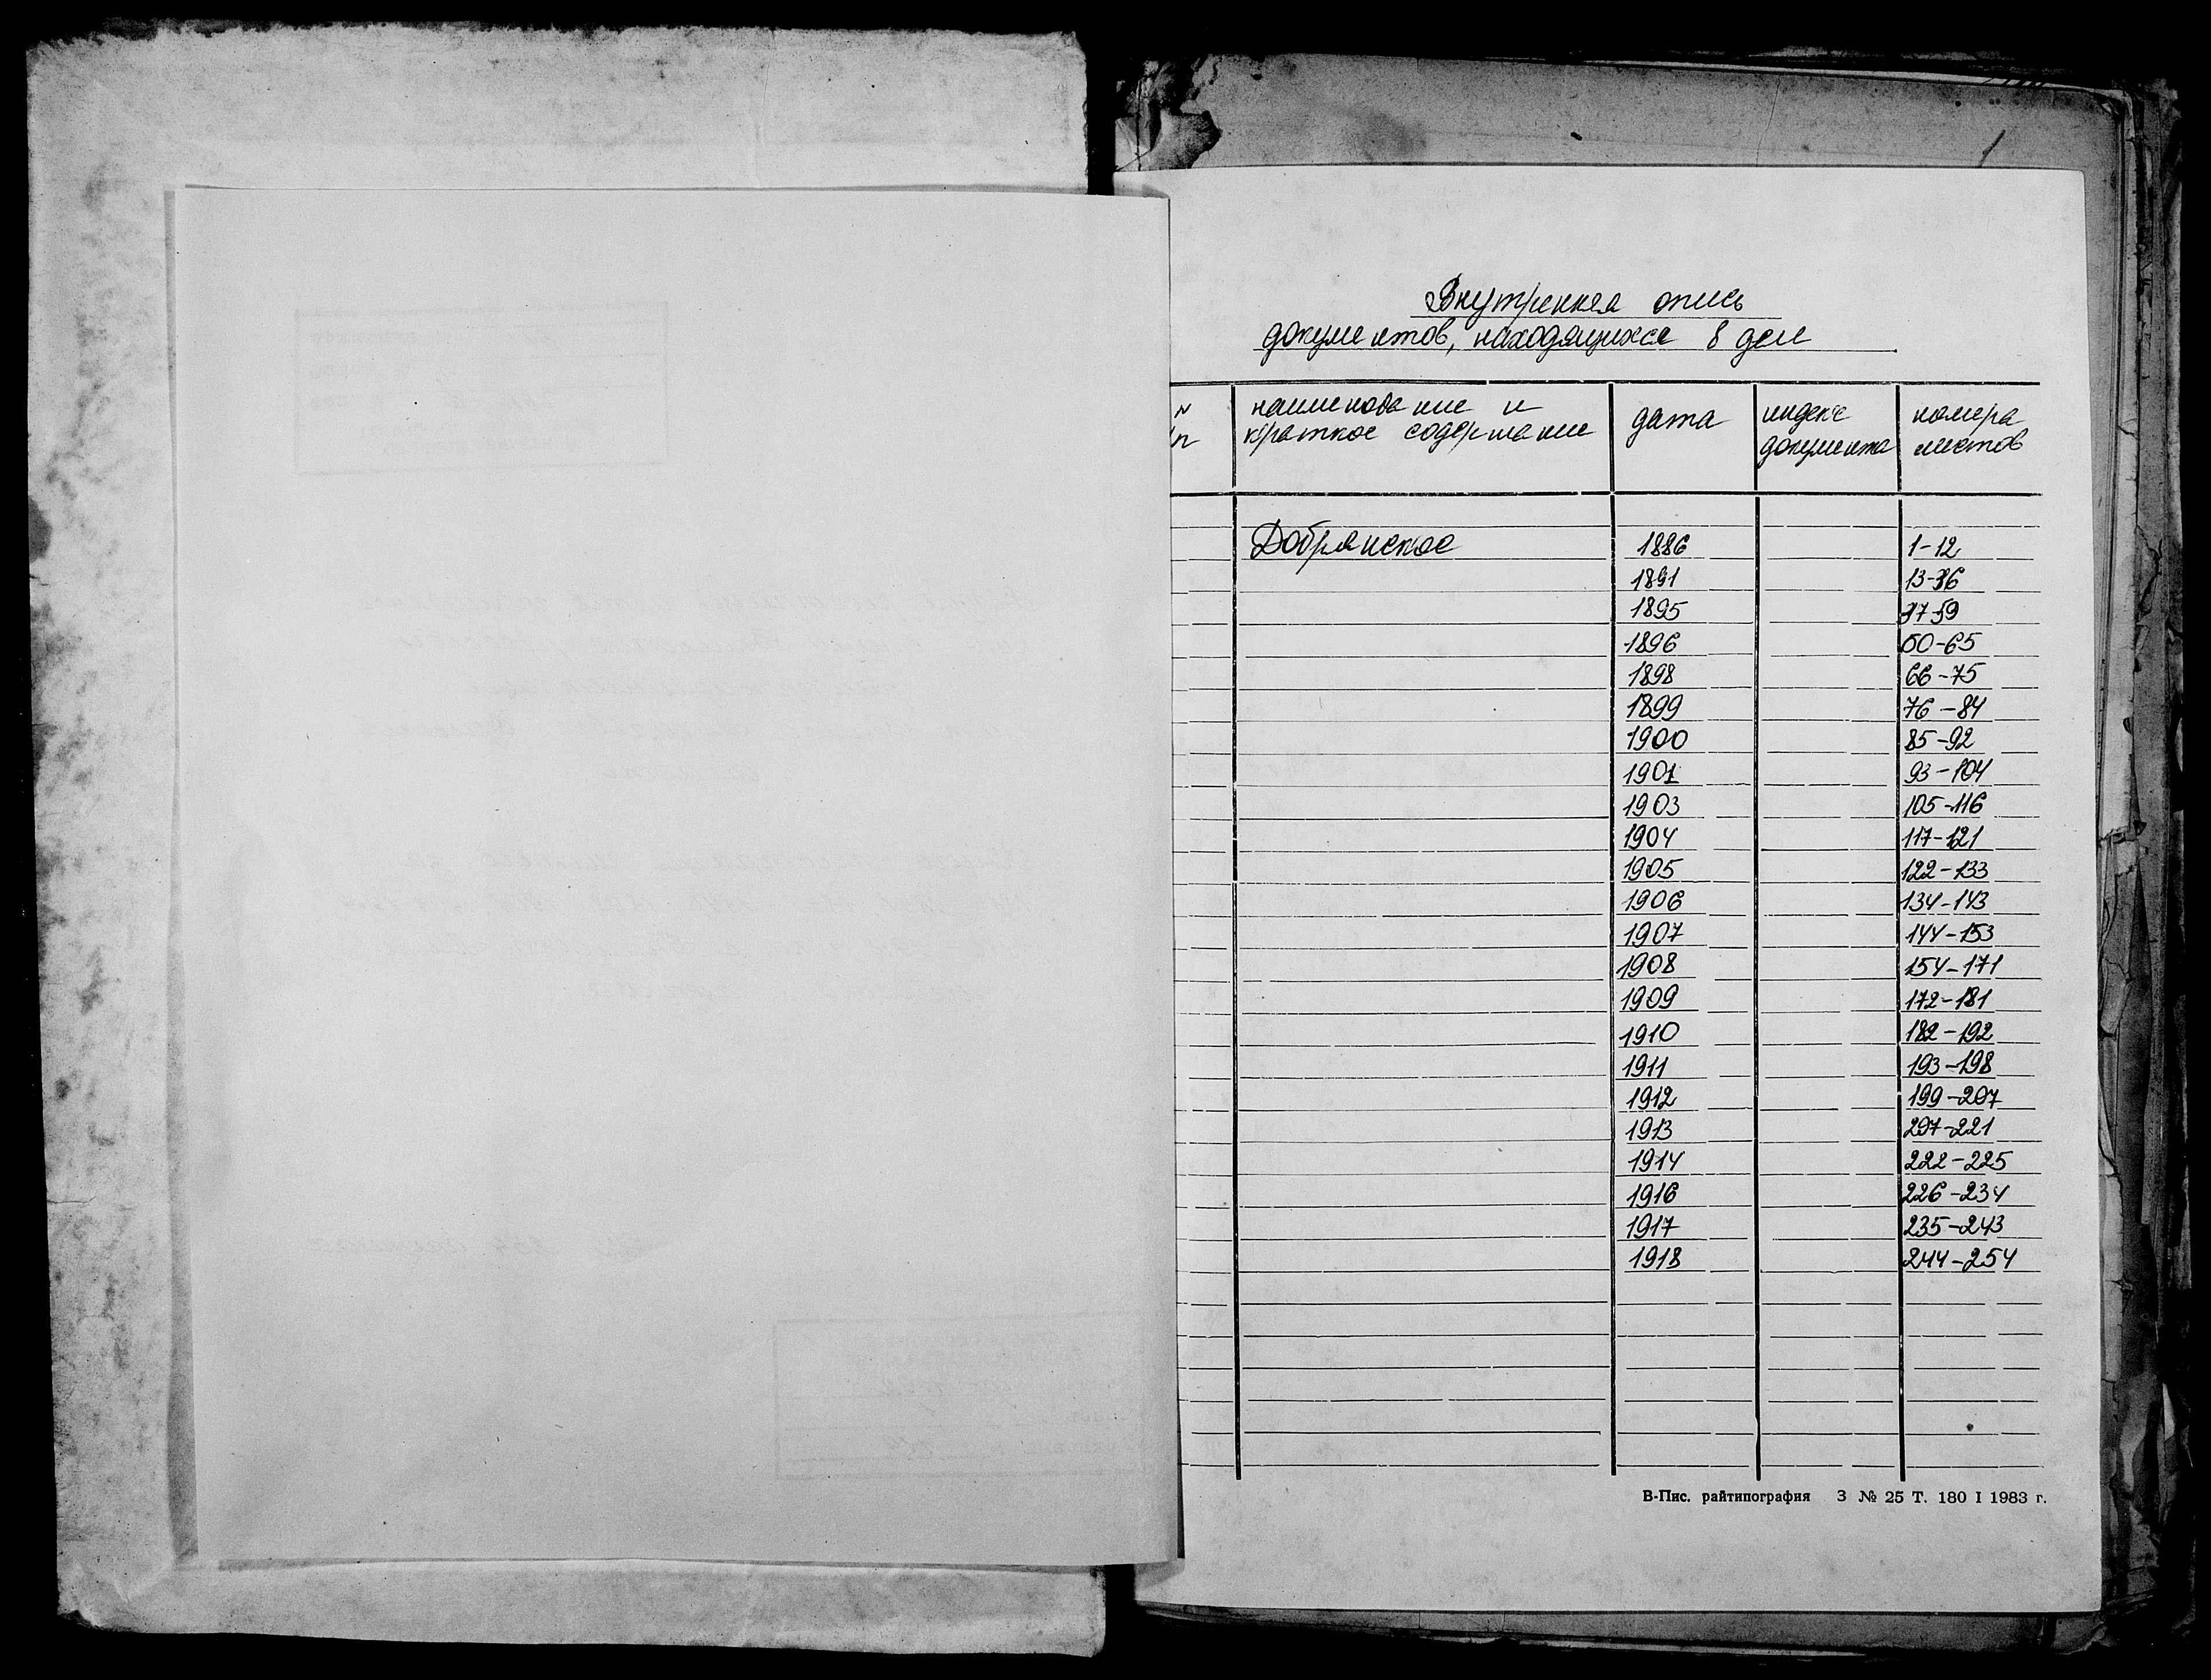 1
Внутренняя опись
документов, находящихся в деле
№ наименование и дата индекс номера
п/п краткое содержание документа листов
Добрянское 1886 1-12
1891 13-36
1895 37-59
1896 60-65
1898 66-75
1899 76-84
1900 85-92
1901 93-104
1903 105-116
1904 117-121
1905 122-133
1906 134-143
1907 144-153
1908 154-171
1909 172-181
1910 182-192
1911 193-198
1912 199-207
1913 207-221
1914 222-225
1916 226-234
1917 235-243
1918 244-254
В-Пис. райтипография З № 25 Т. 180 I 1983 г.